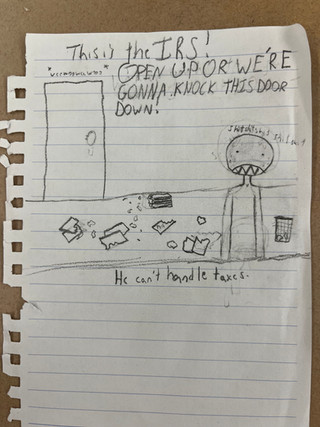 This is the IRS!
OPEN UP OR WE'RE
GONNA KNOCK THIS DOOR
DOWN!
He can't handle taxes.